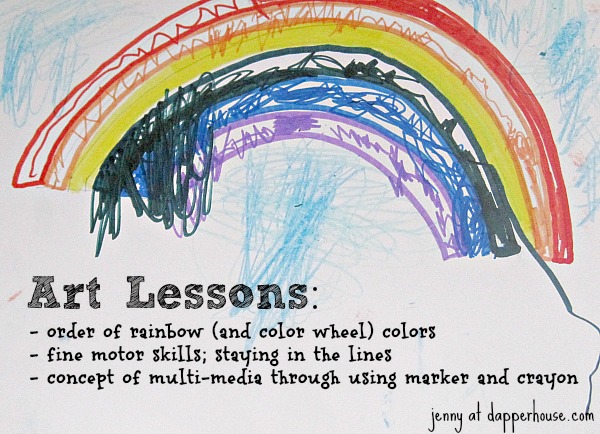 Art Lessons:
- order of rainbow (and color wheel) colors
- fine motor skills; staying in the lines
- concept of multi-media through using marker and crayon
jenny at dapperhouse.com